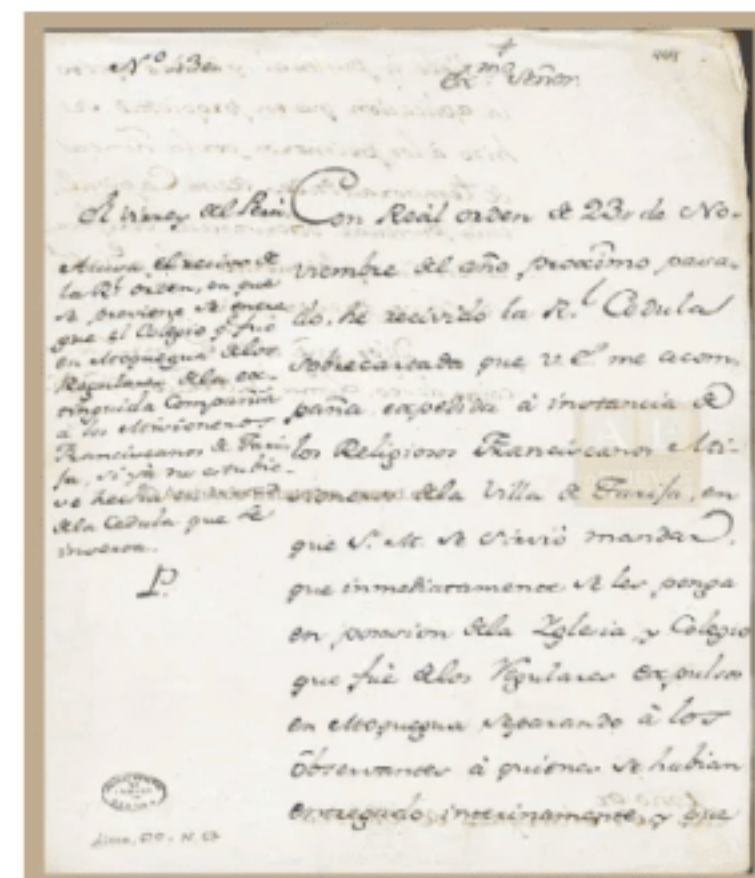 Exmo Señor
El virrey del Perú
Acusa el recivo de
la Rl orden, en que
se previene se entre
gue el Colegio q fué
en Moquegua delos
Regulares dela ex-
tinguida Compañia
à los Misioneros
Franciscanos de Tari-
ja, si yà no estubie-
se hecho en virtud
dela Cedula que se
inserta.
P.
Con Reál orden de 23, de No-
viembre del año proximo pasa-
do, he recivido la R.l Cedula
Sobrecartada que V. E. me acom-
paña expedida à instancia de
los Religiosos Franciscanos Mi-
sioneros dela Villa de Tarija, en
que S. M. se sirvió mandar,
que inmediatamente se les ponga
en posesion dela Yglesia y Colegio
que fué delos Regulares expulsos
en Moquegua separando à los
Observantes à quienes se habian
entregado interinamente, y que